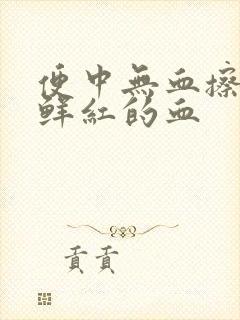 便中無血擦
鮮紅的血
貢貢